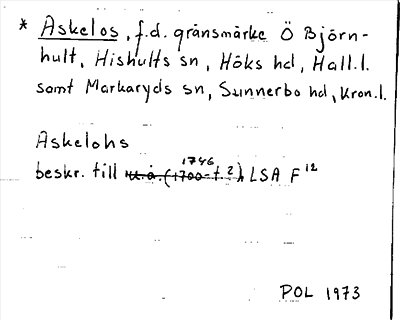 * Askelos, f.d. gränsmärke Ö Björn-
hult, Hishults sn, Höks hd, Hall.l.
samt Markaryds sn, Sunnerbo hd, Kron.l.
Askelohs
1746
beskr. till u.å. (1700-t.?) LSA F 12
POL 1973